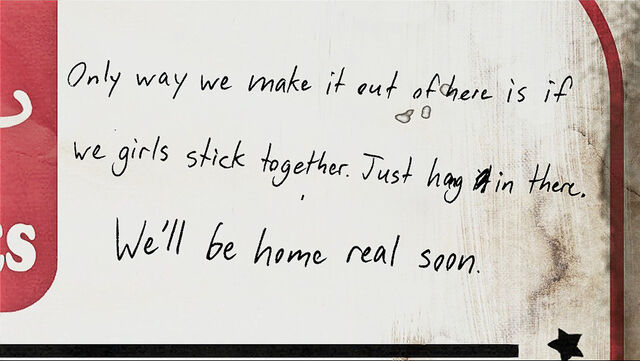 Only way we make it out of here is if
we girls stick together. Just hag in there.
We'll be home real soon.